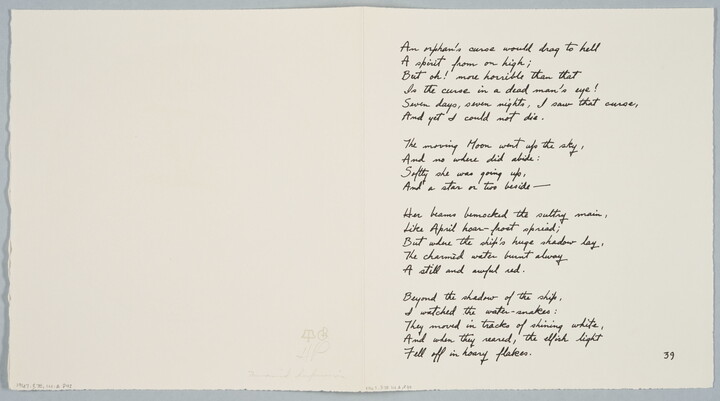 An orphan's curse would drag to hell
A spirit from on high;
But oh! more horrible than that
Is the curse in a dead man's eye!
Seven days, seven nights, I saw that curse,
And yet I could not die.
The moving Moon went up the sky,
And no where did abide:
Softly she was going up,
And a star or two beside—
Her beams bemocked the sultry main,
Like April hoar-frost spread;
But where the ship's huge shadow lay,
The charmèd water burnt alway
A still and awful red.
Beyond the shadow of the ship,
I watched the water-snakes:
They moved in tracks of shining white,
And when they reared, the elfish light
Fell off in hoary flakes.
39